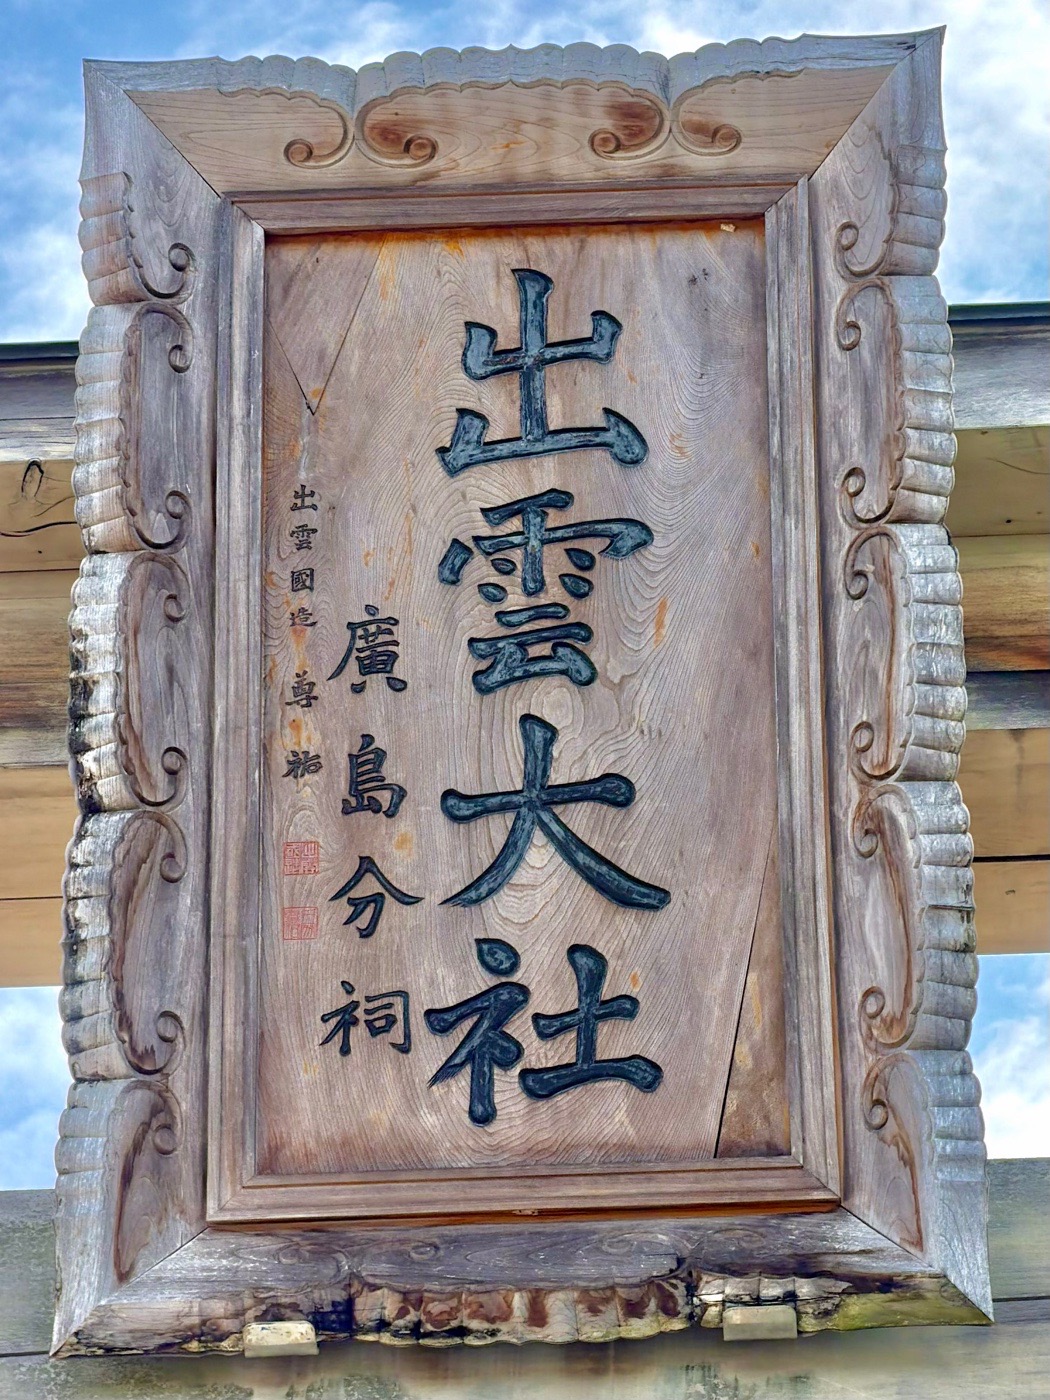 出雲大社
廣島分祠
出雲國造 尊祐